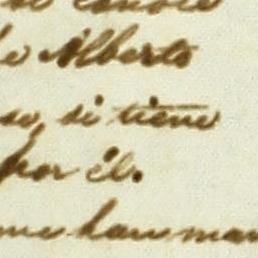 Alberto
so, si tiene
por él.
me han man